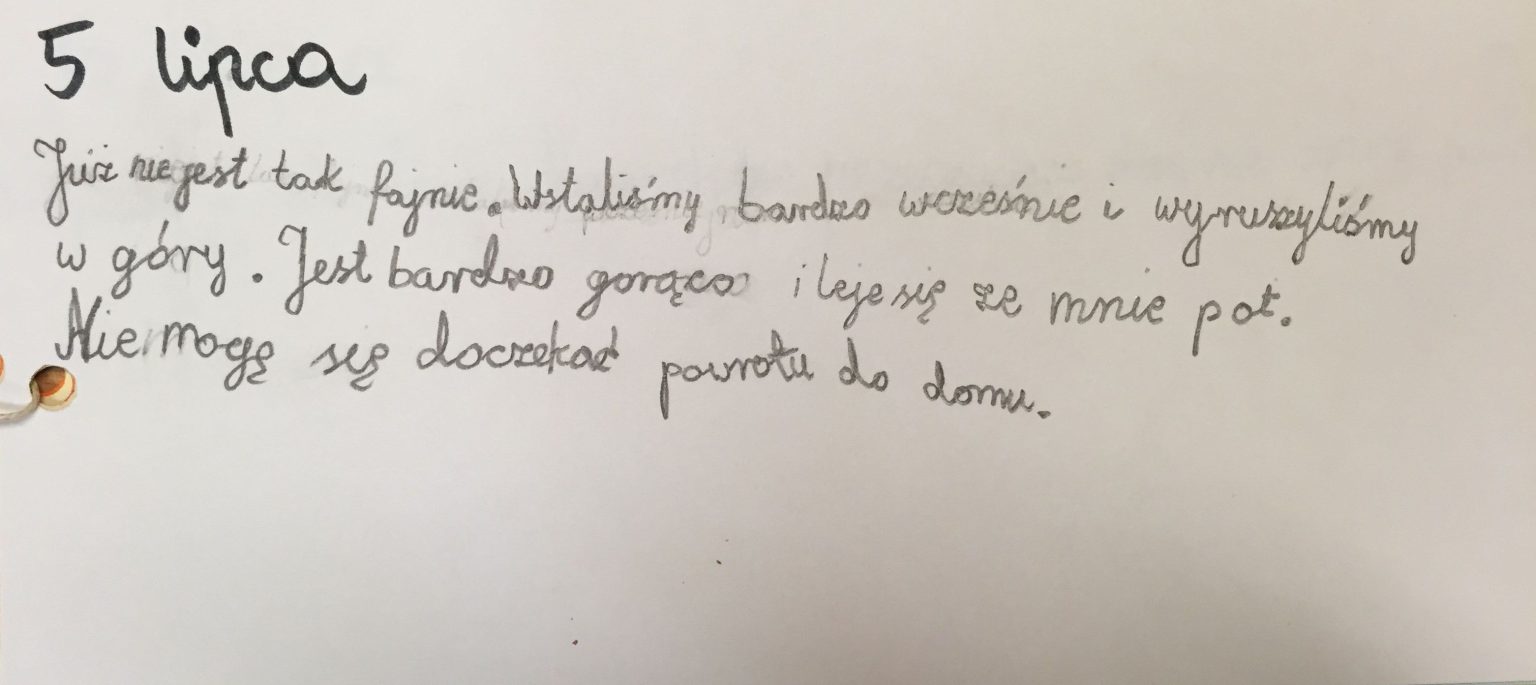 5 lipca
Już nie jest tak fajnie. Wstaliśmy bardzo wcześnie i wyruszyliśmy
w góry. Jest bardzo gorąco i leje się ze mnie pot.
Nie mogę się doczekać powrotu do domu.